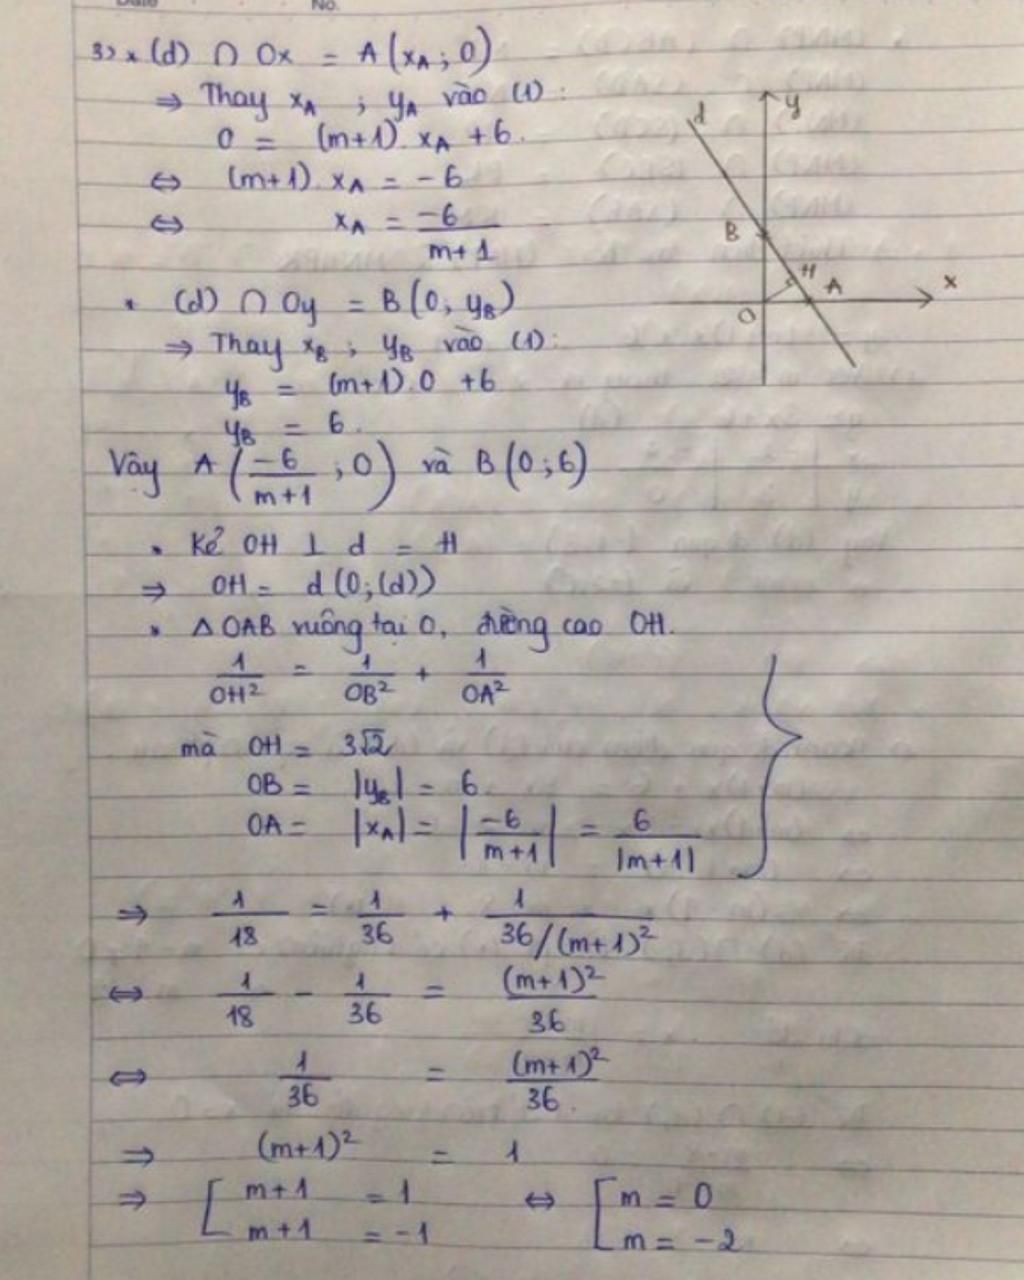 No.
3) * (d) ∩ Ox = A(x_A ; 0)
⇒ Thay x_A ; y_A vào (1) :
0 = (m+1). x_A + 6.
⇔ (m+1). x_A = -6
⇔ x_A = -6/(m+1)
* (d) ∩ Oy = B(0; y_B)
⇒ Thay x_B ; y_B vào (1):
y_B = (m+1).0 + 6
y_B = 6.
Vậy A(-6/(m+1) ; 0) và B(0;6)
d
y
B
H
A
x
O
• Kẻ OH ⊥ d = H
⇒ OH = d(O;(d))
• Δ OAB vuông tại O, đường cao OH.
1/OH² = 1/OB² + 1/OA²
mà OH = 3√2
OB = |y_B| = 6
OA = |x_A| = |-6/(m+1)| = 6/|m+1|
⇒ 1/18 = 1/36 + 1/(36/(m+1)²)
⇔ 1/18 - 1/36 = (m+1)²/36
⇔ 1/36 = (m+1)²/36.
⇒ (m+1)² = 1
⇒ [ m+1 = 1 ⇔ [ m = 0
m+1 = -1 m = -2